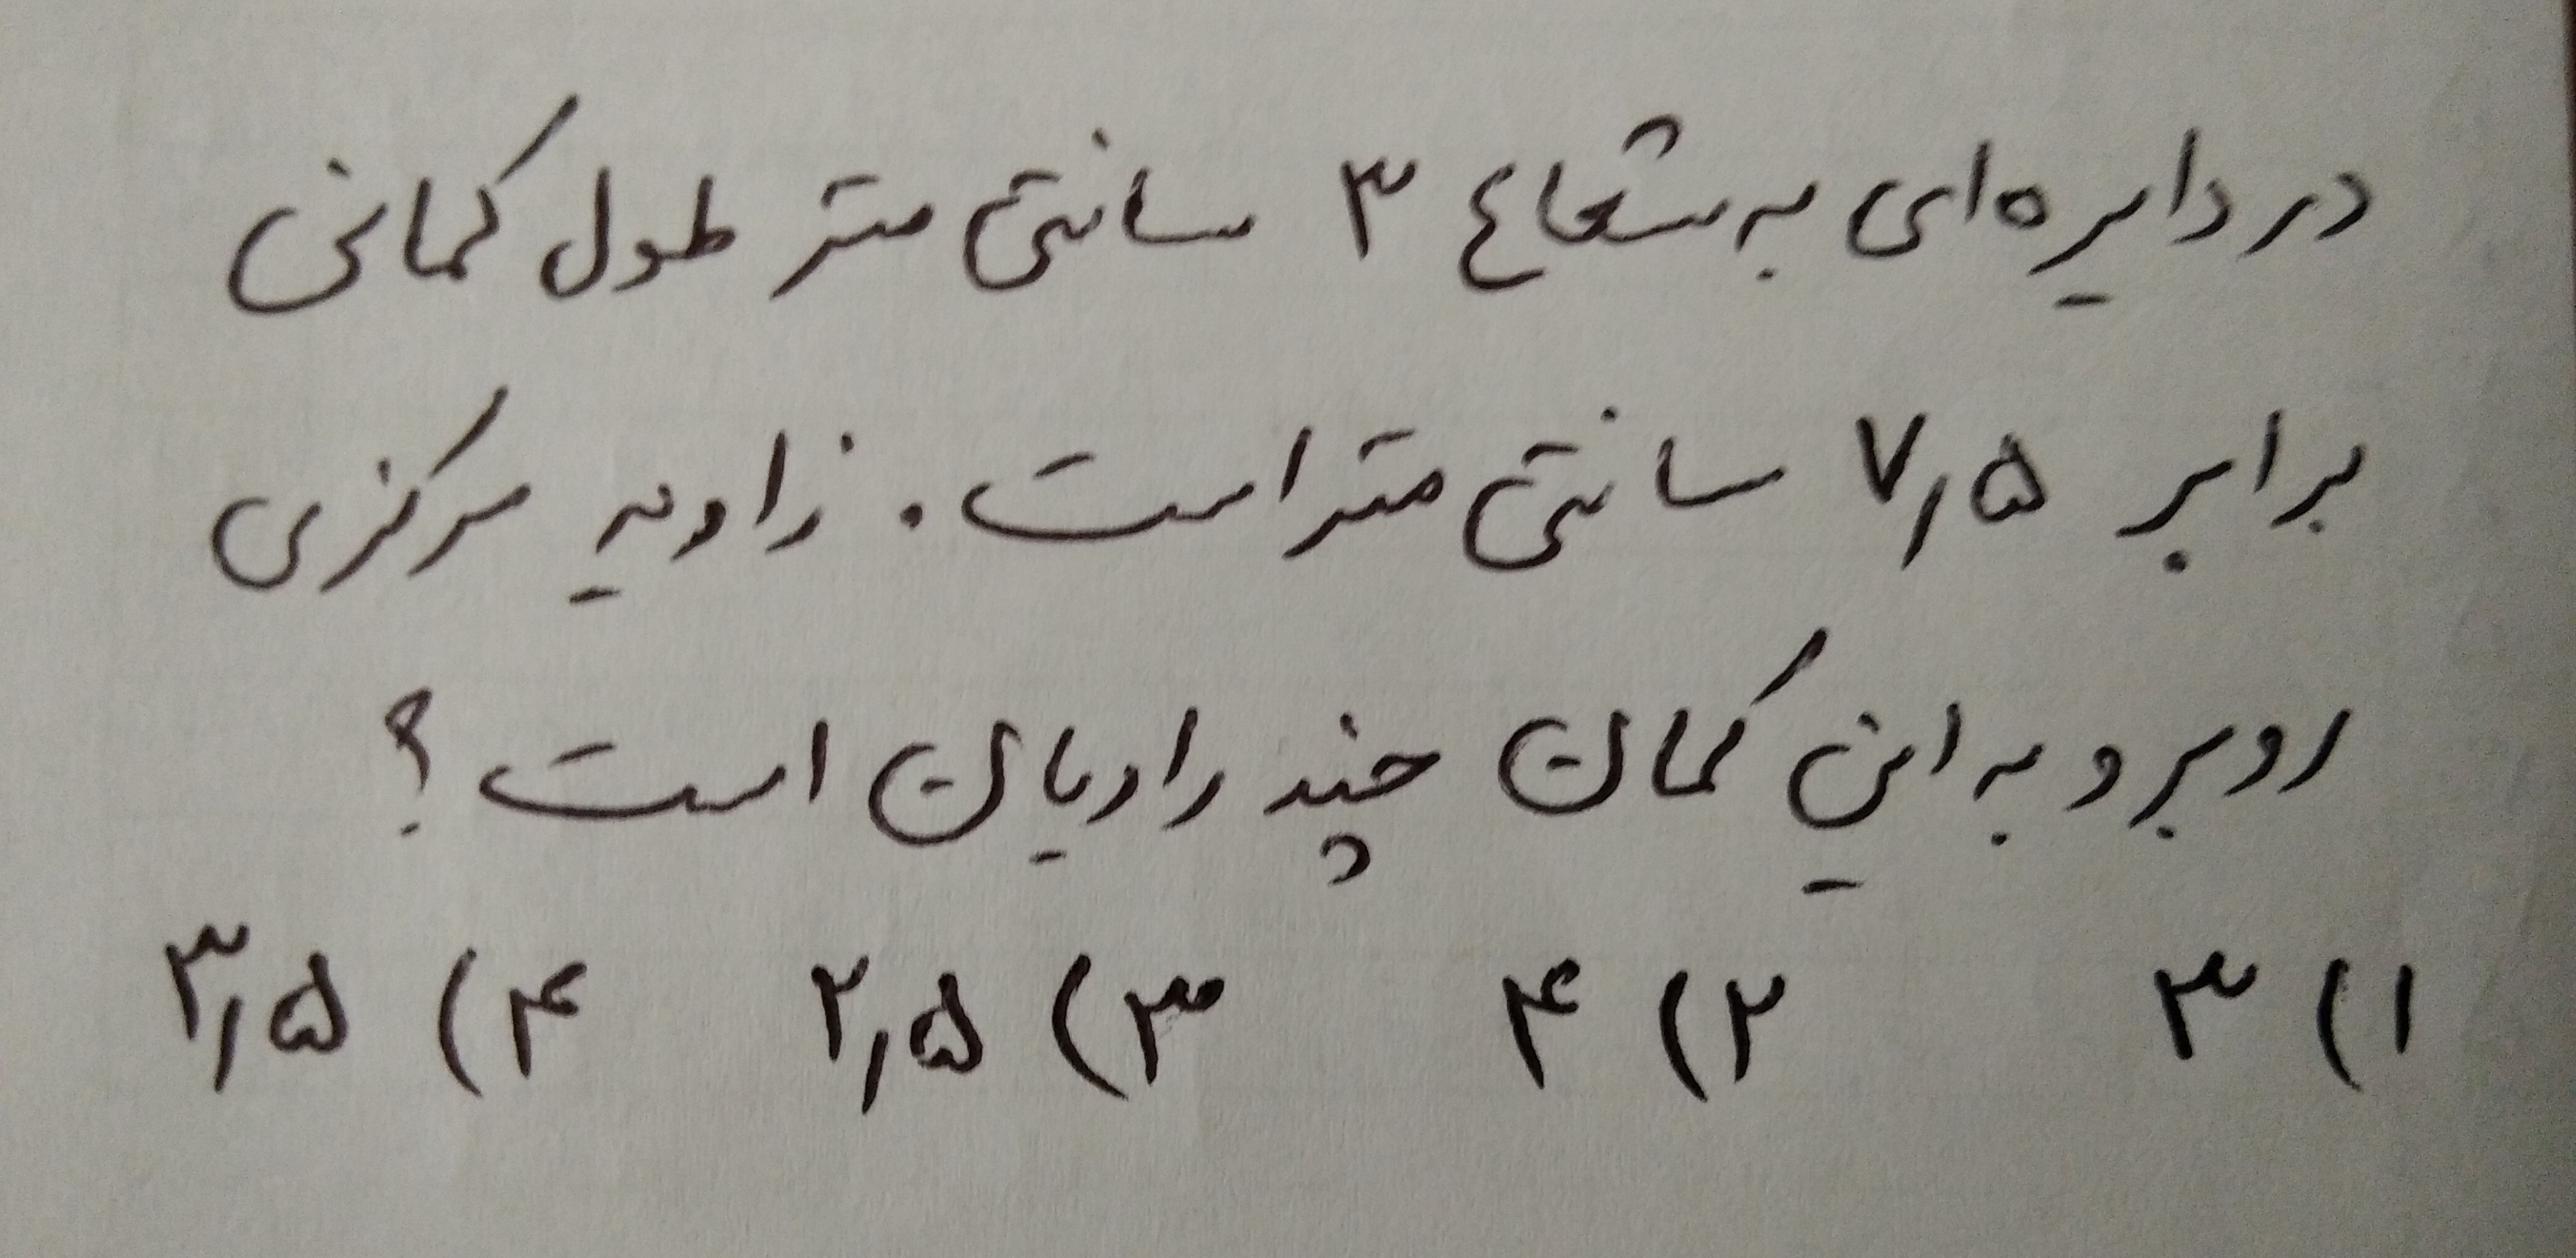 در دایره‌ای به شعاع ۳ سانتی متر طول کمانی
برابر ۷٫۵ سانتی متر است. زاویه مرکزی
روبرو به این کمان چند رادیان است؟
۱) ۳ ۲) ۴ ۳) ۲٫۵ ۴) ۳٫۵